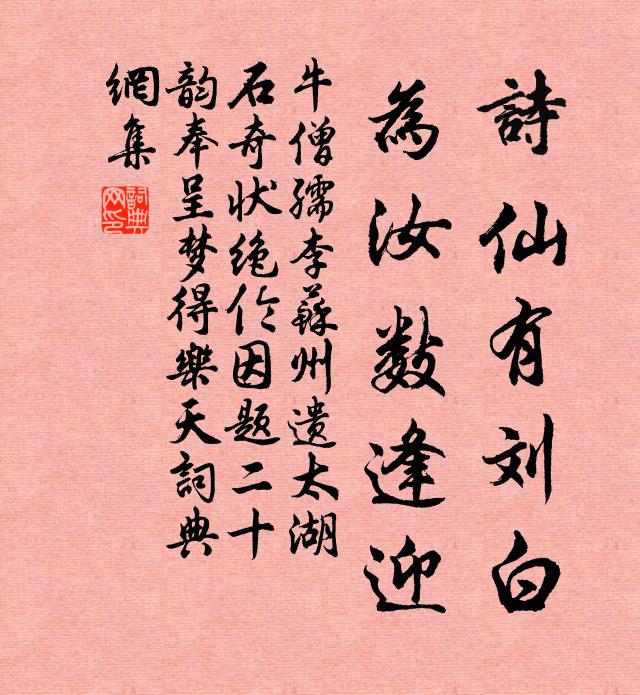 詩仙有刘白
為汝数逢迎
牛僧孺李蘇州遺太湖
石奇状絶伦因题二十
韵奉呈梦得樂天詞典
網集
詞典网印